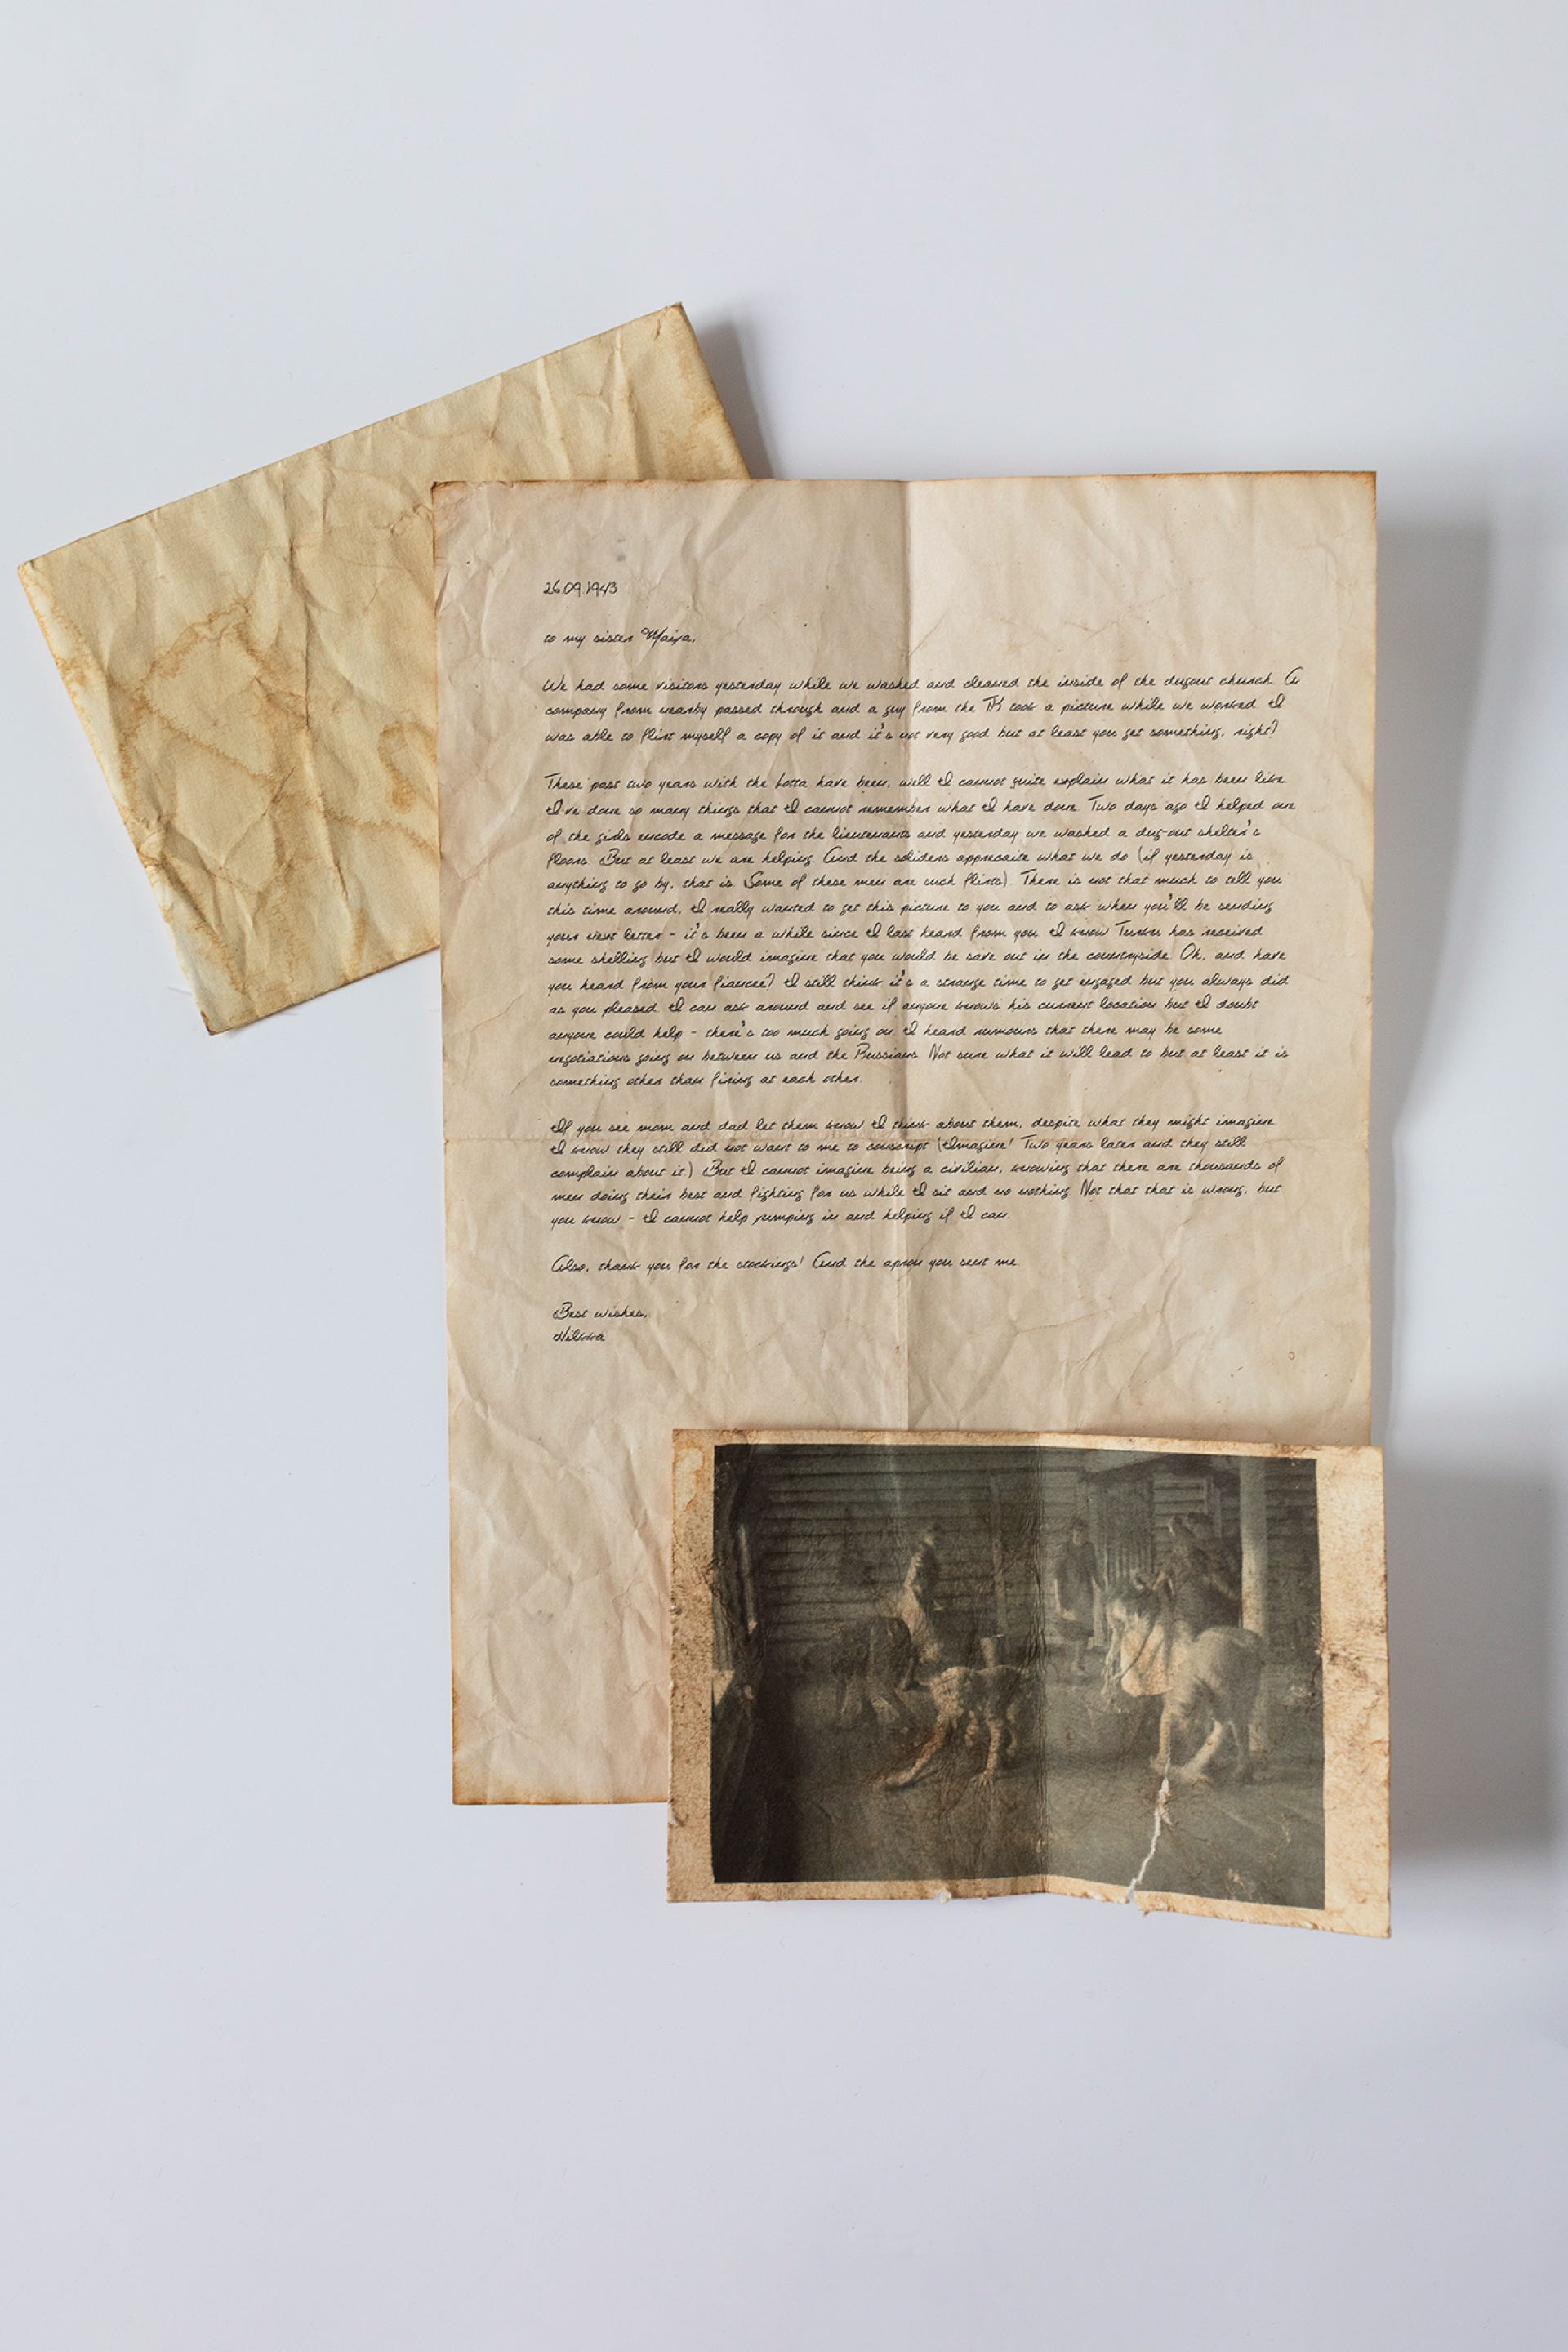 26.09.1943
to my sister Maija,
We had some visitors yesterday while we washed and cleaned the inside of the dugout church. A
company from nearby passed through and a guy from the TK took a picture while we worked. I
was able to flirt myself a copy of it and it's not very good but at least you get something, right?
These past two years with the Lotta have been, well I cannot quite explain what it has been like.
I've done so many things that I cannot remember what I have done. Two days ago I helped one
of the girls encode a message for the lieutenants and yesterday we washed a dug-out shelter's
floors. But at least we are helping. And the soliders apprecaite what we do (if yesterday is
anything to go by, that is. Some of these men are such flirts). There is not that much to tell you
this time around, I really wanted to get this picture to you and to ask when you'll be sending
your next letter - it's been a while since I last heard from you. I know Turku has received
some shelling but I would imagine that you would be save out in the countryside. Oh, and have
you heard from your fiancee? I still think it's a strange time to get engaged but you always did
as you pleased. I can ask around and see if anyone knows his current location but I doubt
anyone could help - there's too much going on. I heard rumours that there may be some
negotiations going on between us and the Russians. Not sure what it will lead to but at least it is
something other than firing at each other.
If you see mom and dad let them know I think about them, despite what they might imagine.
I know they still did not want to me to conscript (Imagine! Two years later and they still
complain about it.) But I cannot imagine being a civilian, knowing that there are thousands of
men doing their best and fighting for us while I sit and no nothing. Not that that is wrong, but
you know - I cannot help jumping in and helping if I can.
Also, thank you for the stockings! And the apron you sent me.
Best wishes,
Hilkka